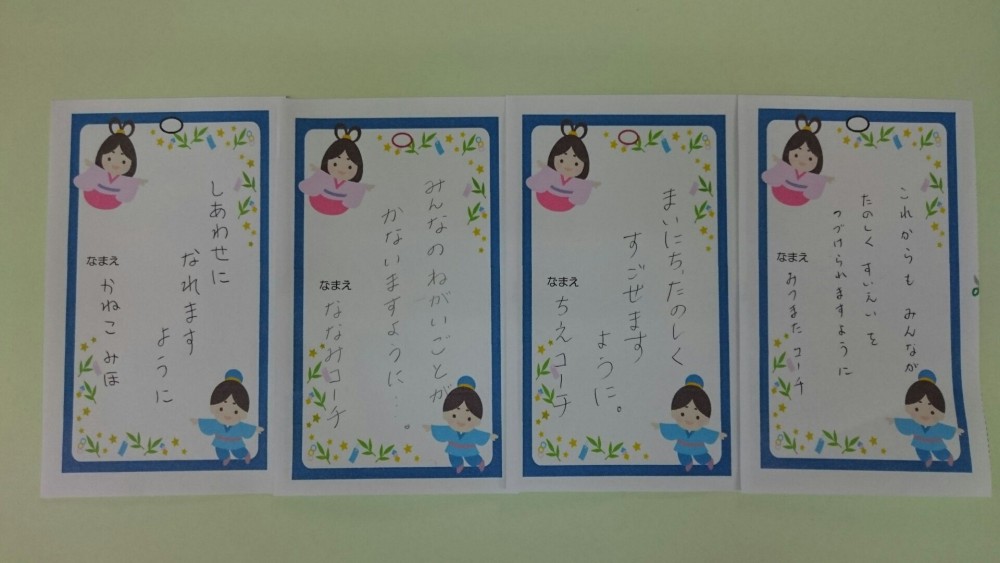 しあわせに
なれます
ように
なまえ かねこ みほ
みんなの ねがいごとが
かないますように…。
なまえ ななみコーチ
まいにち、たのしく
すごせます
ように。
なまえ ちえコーチ
これからも みんなが
たのしく すいえいを
つづけられますように
なまえ おつまた コーチ